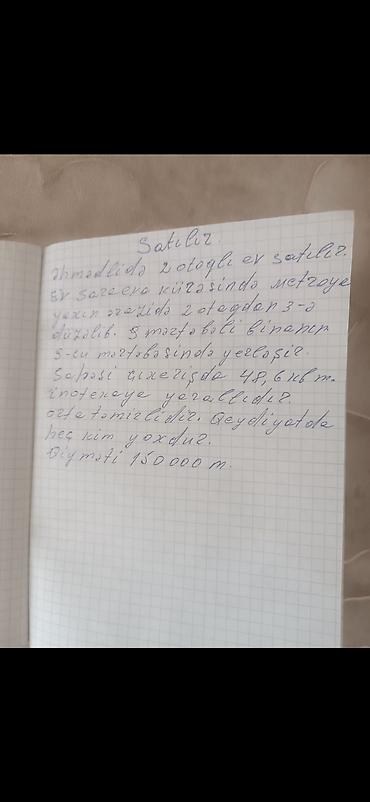 Satılır.
Əhmədlidə 2 otaqlı ev satılır.
Ev Sareeva küçəsində metroya
yaxın ərazidə 2 otaqdan 3-ə
düzəlib. 5 mərtəbəli binanın
5-cu mərtəbəsində yerləşir.
Sahəsi çıxarışda 48,6 kv m.
İpotekaya yarallıdır.
orta təmirlidir. Qeydiyatda
heç kim yoxdur.
Qiyməti 150 000 m.